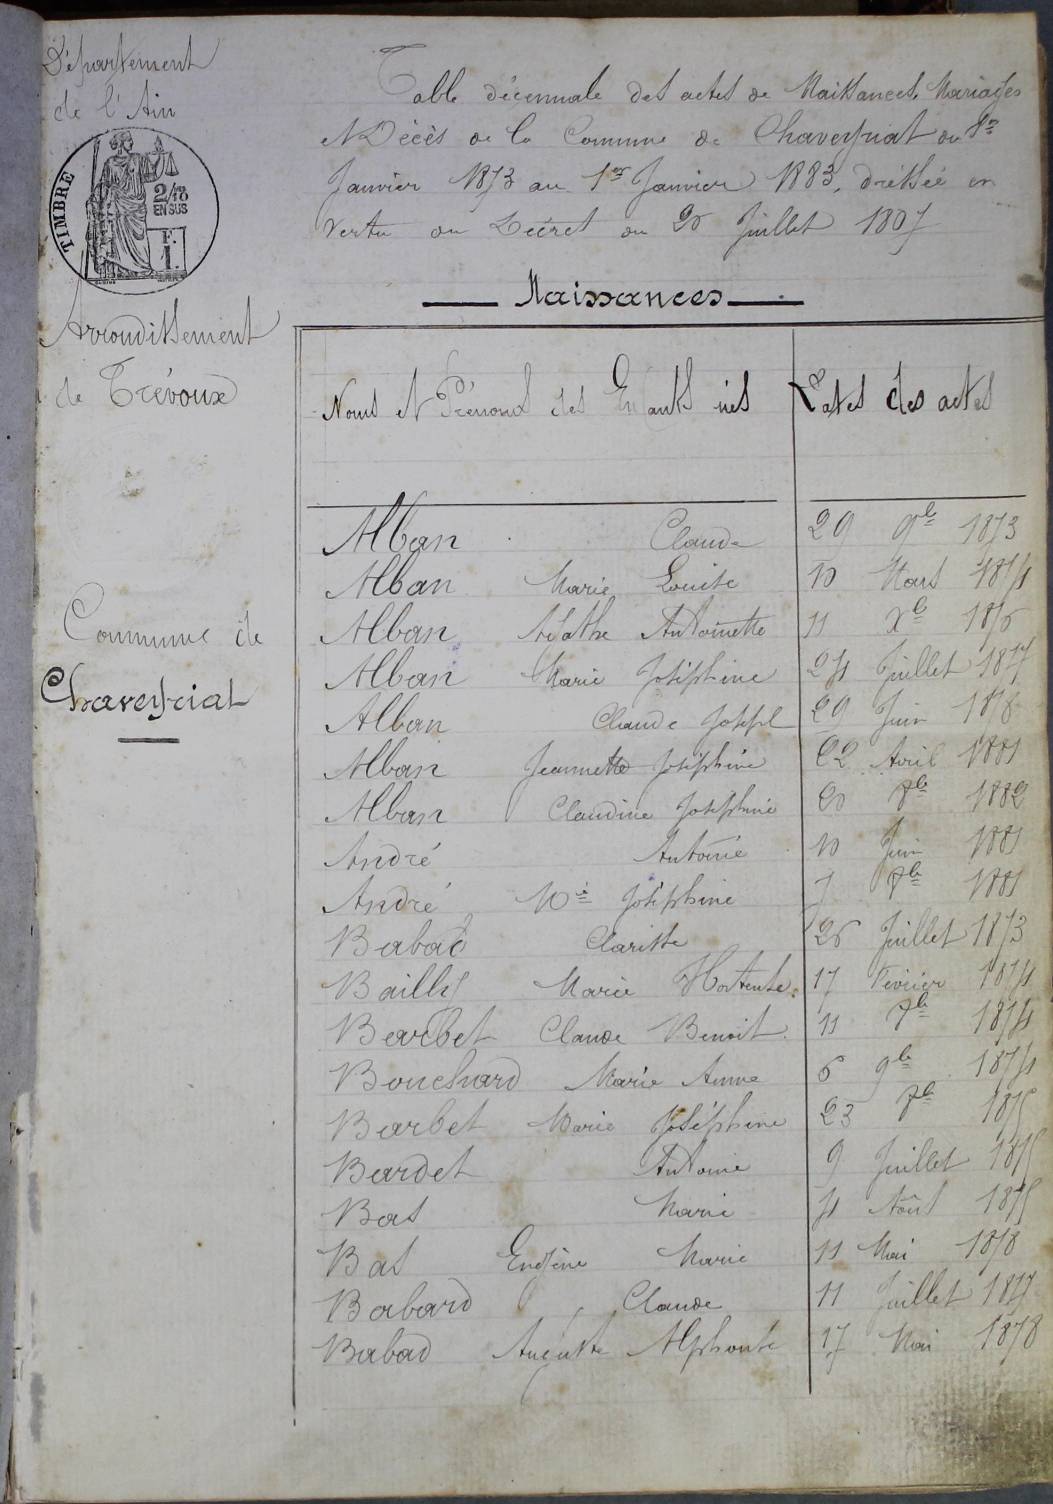 Département
de l'Ain
TIMBRE
2/10
EN SUS
F.
1.
Arrondissement
de Trévoux
Commune de
Chaveyriat
Table décennale des actes de Naissances, Mariages
et Décès de la Commune de Chaveyriat du 1er
Janvier 1873 au 1er Janvier 1883, dressée en
vertu du Décret du 20 Juillet 1807
Naissances
Noms et Prénoms des Enfants nés Dates des actes
Alban Claude 29 9bre 1873
Alban Marie Louise 10 Mars 1874
Alban Agathe Antoinette 11 Xbre 1876
Alban Marie Joséphine 24 Juillet 1877
Alban Claude Joseph 29 Juin 1878
Alban Jeannette Joséphine 22 Avril 1881
Alban Claudine Joséphine 20 7bre 1882
André Antoine 10 Juin 1881
André Mie Joséphine 7 7bre 1881
Babad Clarisse 26 Juillet 1873
Bailly Marie Hortense 17 Février 1874
Barbet Claude Benoit 11 7bre 1874
Bouchard Marie Anne 6 9bre 1874
Barbet Marie Joséphine 23 7bre 1875
Bardet Antoine 9 Juillet 1875
Bas Marie 4 Août 1875
Bas Eugène Marie 11 Mai 1878
Babard Claude 11 Juillet 1877
Babad Auguste Alphonse 17 Mai 1878